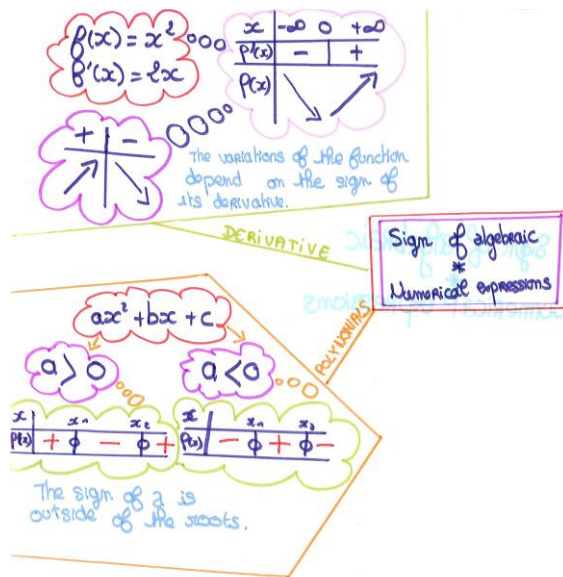 f(x) = x²
f'(x) = 2x
x -∞ 0 +∞
f'(x) - +
f(x)
+ -
The variations of the function
depend on the sign of
its derivative.
DERIVATIVE
Sign of algebraic
*
Numerical expressions
POLYNOMIALS
ax² + bx + c
a > 0
a < 0
x x₁ x₂
P(x) + ϕ - ϕ +
x x₁ x₂
P(x) - ϕ + ϕ -
The sign of a is
outside of the roots.